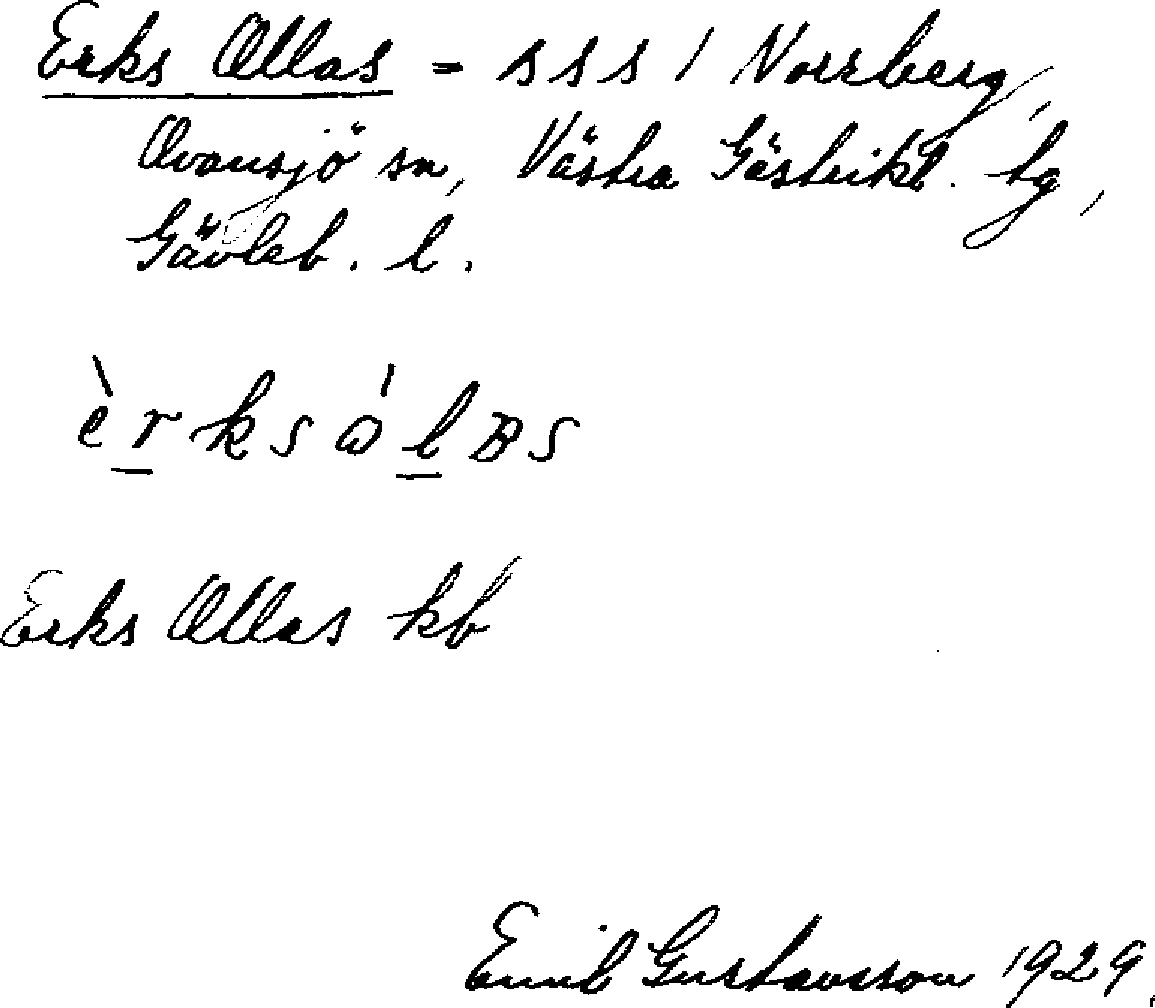 Erks Ollas = s s s / Norrberg,
Ovansjö sn, Västra Gästrikl. tg,
Gävleb. l.
è r k s ó l ʙ s
Erks Ollas kb
Emil Gustavsson 1929.